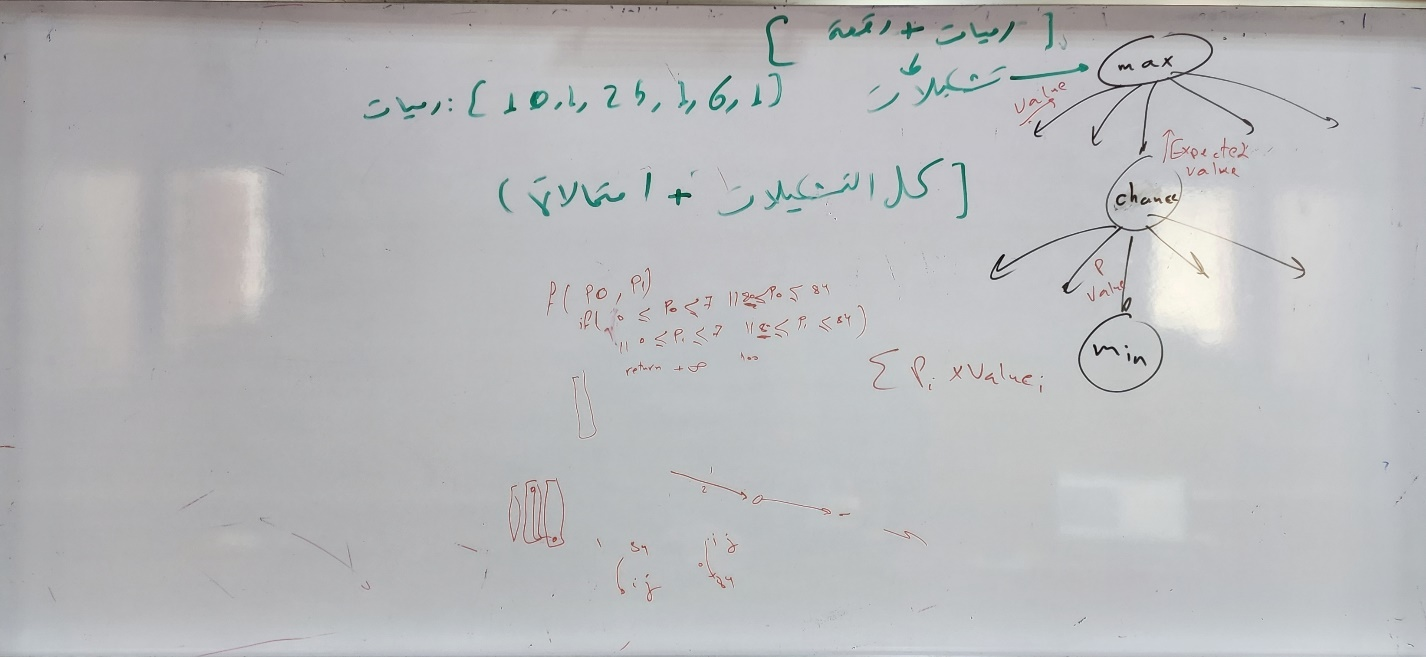 [ رميات + رقعة ]
تشكيلات
رميات: [ 10, 1, 25, 1, 6, 1 ]
[ كل التشكيلات + احتمالاتها )
max
value
Expected
value
chance
P
value
min
f( P0, P1)
if( 0 ≤ P0 ≤ 7 || ≤ P0 ≤ 84
|| 0 ≤ P1 ≤ 7 || ≤ P1 ≤ 84 )
return +∞
Σ Pi x Valuei
1
2
84
i j
i j
84